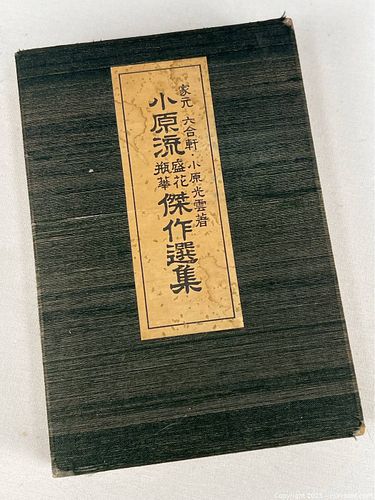 家元 六合軒・小原光雲著
小原流 盛花 瓶華 傑作選集